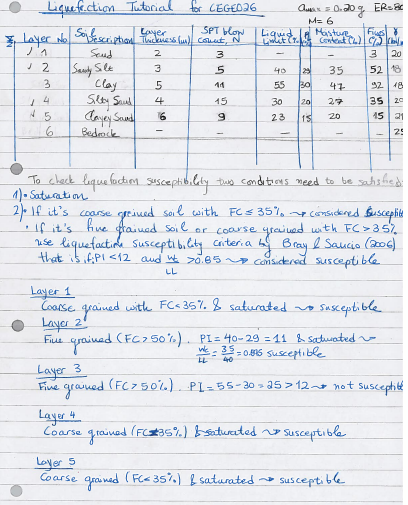 Liquefaction Tutorial for CEGE026 amax = 0.20g ER=80
M=6
Layer No Soil Description Layer Thickness (m) SPT blow count, N Liquid Limit (%) P Moisture Content (%) Fines (%)
1 Sand 2 3 – – 3 20
2 Sandy Silt 3 5 40 29 35 52 18
3 Clay 5 11 55 30 47 92 18
4 Silty Sand 4 15 30 20 27 35 20
5 Clayey Sand 6 9 23 15 20 15 21
6 Bedrock – – – – – 25
To check liquefaction susceptibility two conditions need to be satisfied
1) • Saturation
2) • If it's coarse grained soil with FC ≤ 35% → considered suscepti
• If it's fine grained soil or coarse grained with FC > 35%
use liquefaction susceptibility criteria by Bray & Sancio (2006)
that is if: PI < 12 and wc/LL > 0.85 → considered susceptible
Layer 1
Coarse grained with FC < 35% & saturated → susceptible
Layer 2
Fine grained (FC > 50%). PI = 40 - 29 = 11 & saturated →
wc/LL = 35/40 = 0.885 susceptible
Layer 3
Fine grained (FC > 50%). PI = 55 - 30 = 25 > 12 → not suscepti
Layer 4
Coarse grained (FC 35%) & saturated → susceptible
Layer 5
Coarse grained (FC < 35%) & saturated → susceptible